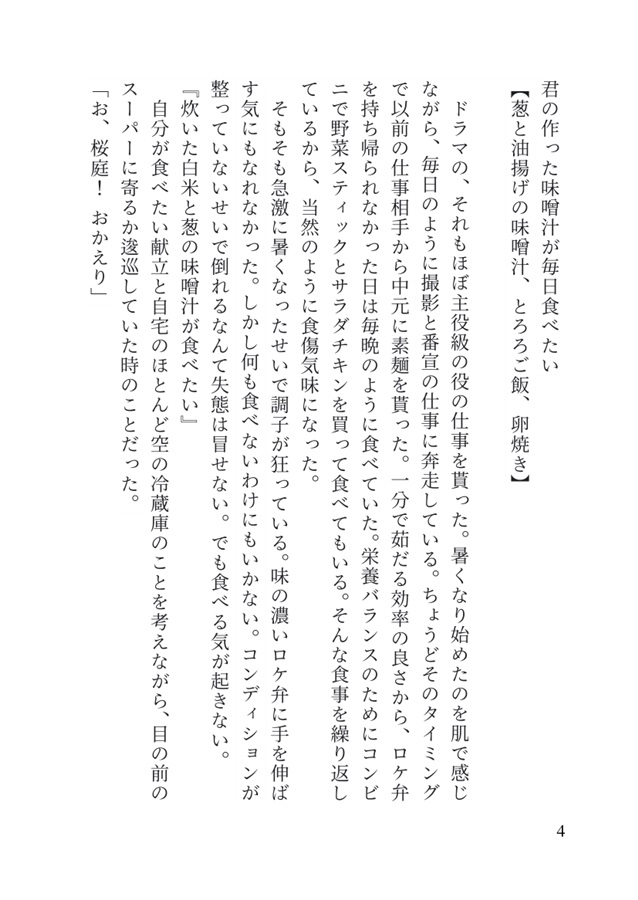 君の作った味噌汁が毎日食べたい
【葱と油揚げの味噌汁、とろろご飯、卵焼き】
　ドラマの、それもほぼ主役級の役の仕事を貰った。暑くなり始めたのを肌で感じ
ながら、毎日のように撮影と番宣の仕事に奔走している。ちょうどそのタイミング
で以前の仕事相手から中元に素麺を貰った。一分で茹だる効率の良さから、ロケ弁
を持ち帰られなかった日は毎晩のように食べていた。栄養バランスのためにコンビ
ニで野菜スティックとサラダチキンを買って食べてもいる。そんな食事を繰り返し
ているから、当然のように食傷気味になった。
　そもそも急激に暑くなったせいで調子が狂っている。味の濃いロケ弁に手を伸ば
す気にもなれなかった。しかし何も食べないわけにもいかない。コンディションが
整っていないせいで倒れるなんて失態は冒せない。でも食べる気が起きない。
『炊いた白米と葱の味噌汁が食べたい』
　自分が食べたい献立と自宅のほとんど空の冷蔵庫のことを考えながら、目の前の
スーパーに寄るか逡巡していた時のことだった。
「お、桜庭！　おかえり」
4